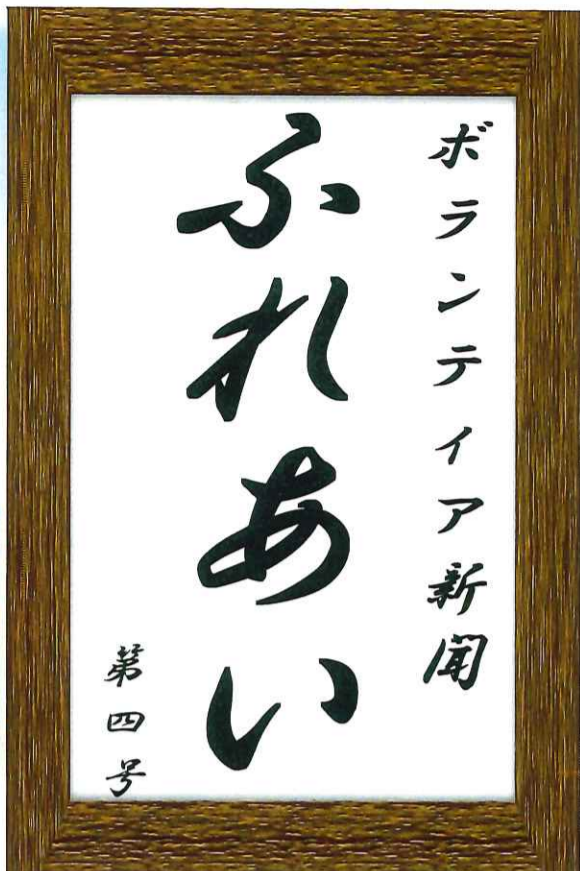 ボランティア新聞
ふれあい
第四号